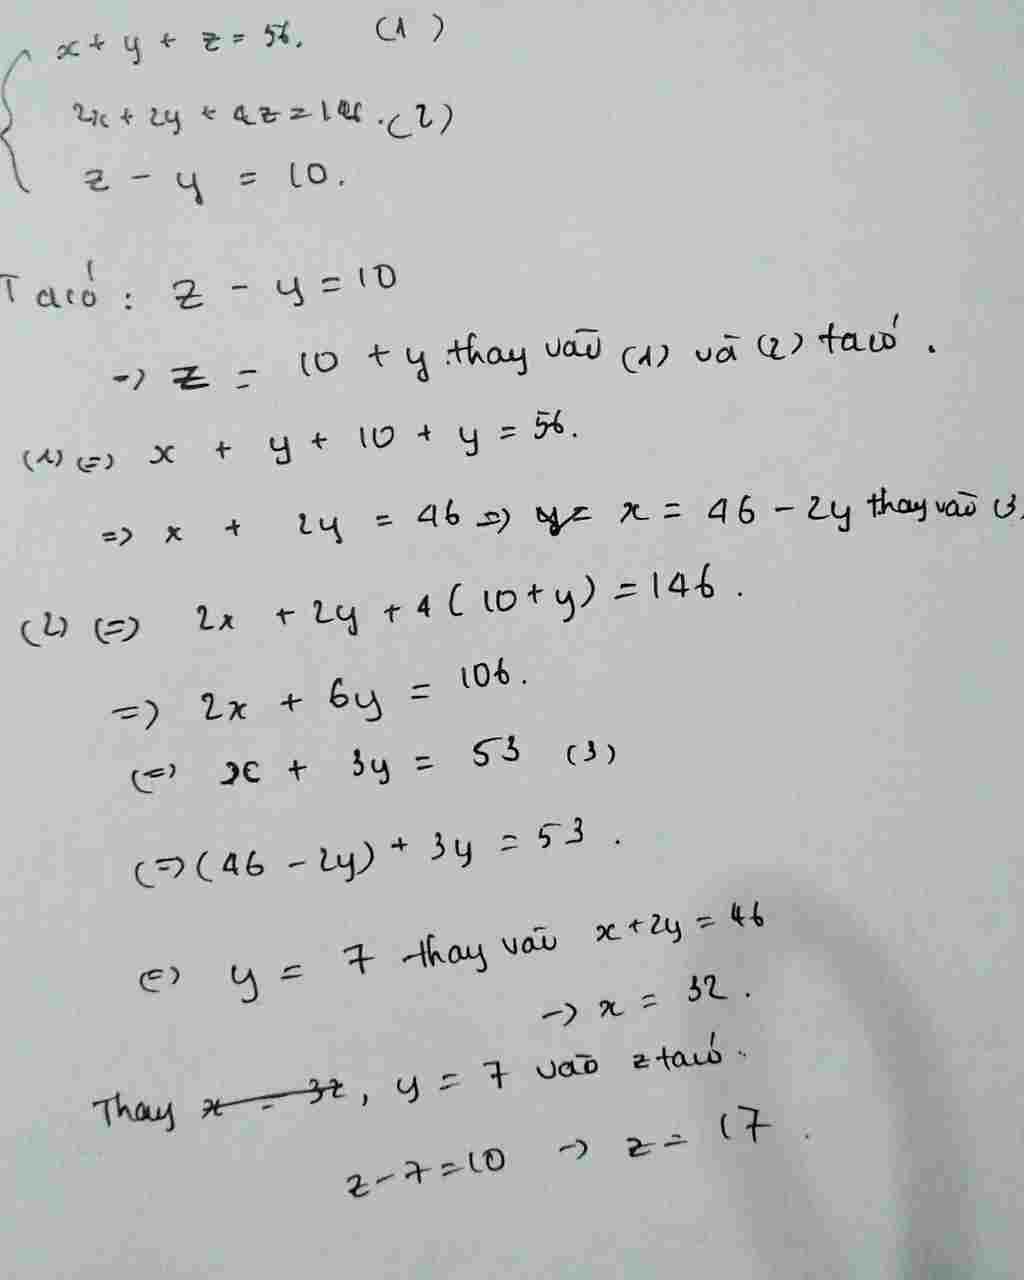 x + y + z = 56. (1)
2x + 2y + 4z = 146. (2)
z - y = 10.
Ta có : z - y = 10
-> z = 10 + y thay vào (1) và (2) ta có.
(1) <=> x + y + 10 + y = 56.
=> x + 2y = 46 => x = 46 - 2y thay vào (3)
(2) <=> 2x + 2y + 4(10+y) = 146.
=> 2x + 6y = 106.
<=> x + 3y = 53 (3)
<=> (46 - 2y) + 3y = 53.
<=> y = 7 thay vào x + 2y = 46
-> x = 32.
Thay x = 32, y = 7 vào z ta có.
z - 7 = 10 -> z = 17.